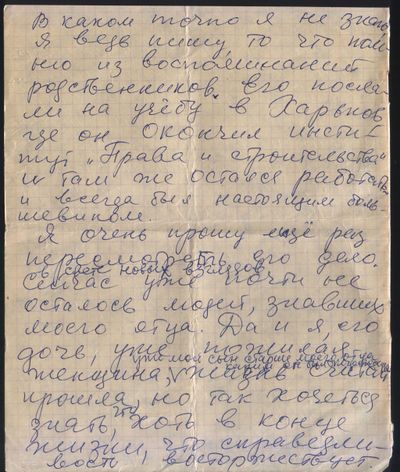 В каком точно я не знаю
Я ведь пишу, то что пом-
ню из воспоминаний
родственников. Его посла-
ли на учёбу в Харьков
где он окончил инсти-
тут „Права и строительства"
и там же остался работать
и всегда был настоящим боль-
шевиком.
Я очень прошу ещё раз
пересмотреть его дело.
в свете новых взглядов
Сейчас уже почти не
осталось людей, знавших
моего отца. Да и я, его
дочь, уже пожилая
уже мой сын старше моего отца
женщина, жизнь считай
прошла, но так хочеться
знать, что хоть в конце
жизни, что справедли-
вость восторжествует